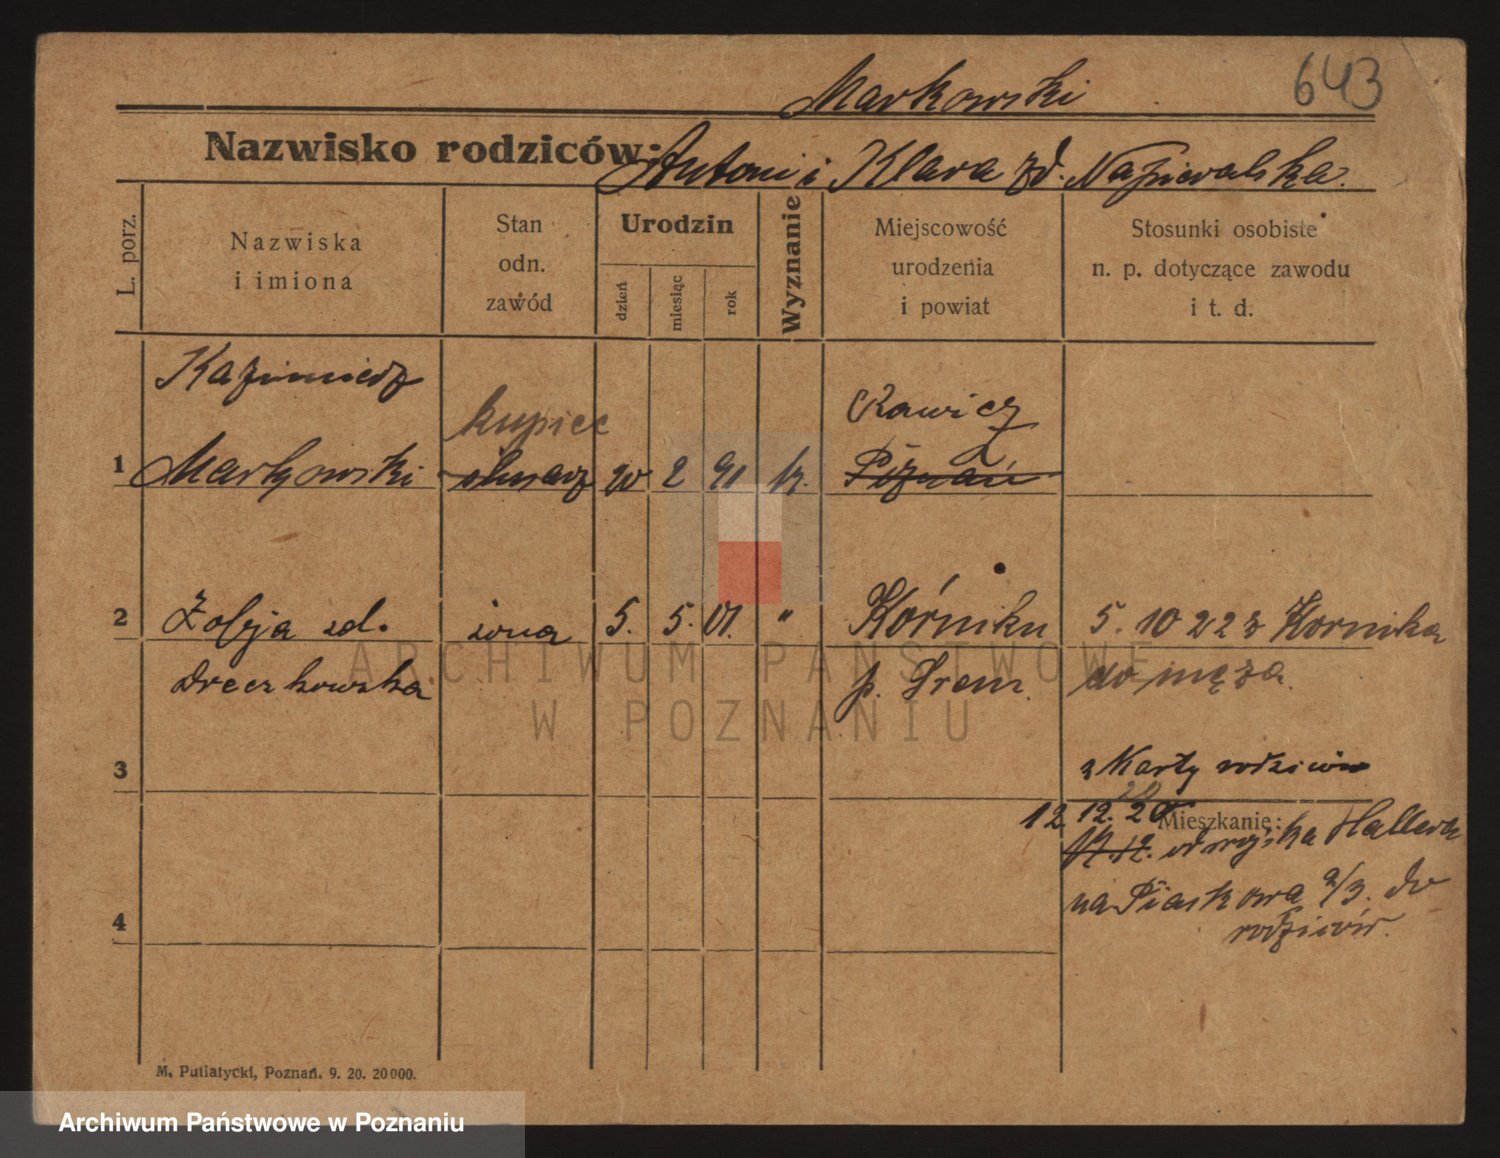 643
Markowski
Nazwisko rodziców: Antoni i Klara zd.
L. porz.
Nazwiska
i imiona
Stan
odn.
zawód
Urodzin
dzień
miesiąc
rok
Wyznanie
Miejscowość
urodzenia
i powiat
Stosunki osobiste
n. p. dotyczące zawodu
i t. d.
Kazimierz
kupiec
Rawicz
1 Markowski 2 91 k. Poznań
2 Zofja zd. żona 5. 5. 01. " Kórniku 5. 10 22 z Kornika
Dreczkowska p. Śrem do męża.
3 z Karty rodziców
12. 12. 20
Mieszkanie:
12. od wojska Hallera
na Piaskowa 2/3. do
4 rodziców.
M. Putiatycki, Poznań. 9. 20. 20000.
ARCHIWUM PAŃSTWOWE
W POZNANIU
Archiwum Państwowe w Poznaniu